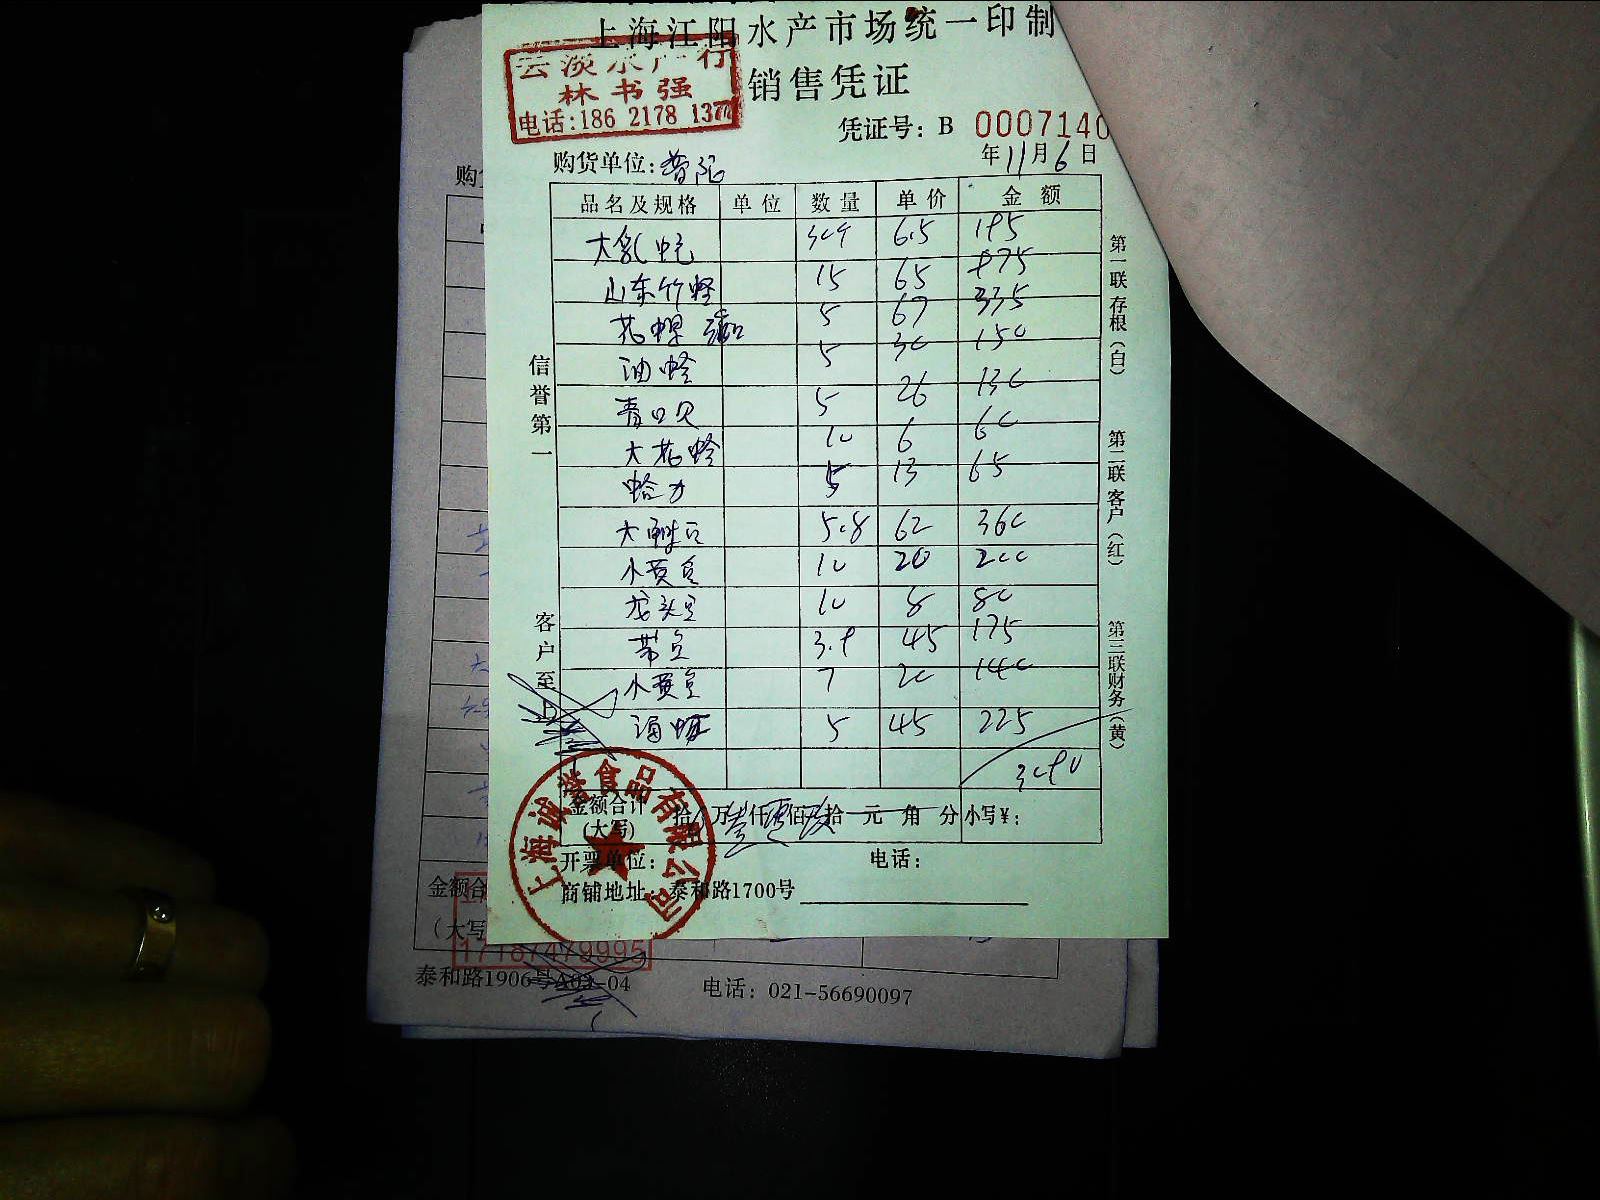 上海江阳水产市场统一印制
云淡水产行
林书强
电话:186 2178 1377
销售凭证
凭证号: B 0007140
年11月6日
购货单位:普陀
品名及规格 单位 数量 单价 金额
6.5 195
山东竹蛏 15 65 975
花甲 5 67 335
油蛤 5 30 150
青口贝 5 26 130
大花蛤 10 6 60
蛤力 5 13 65
5.8 62 360
小黄鱼 10 20 200
龙头鱼 10 8 80
带鱼 3.9 45 175
小黄鱼 7 20 140
5 45 225
3090
金额合计 拾 万 仟 佰 拾 元 角 分 小写¥:
(大写)
开票单位: 电话:
商铺地址: 泰和路1700号
信誉第一
客户至上
第一联 存根(白)
第二联 客户(红)
第三联 财务(黄)
上海诚誉食品有限公司
购
金额合
(大写
17187479995
泰和路1906号A03-04 电话: 021-56690097